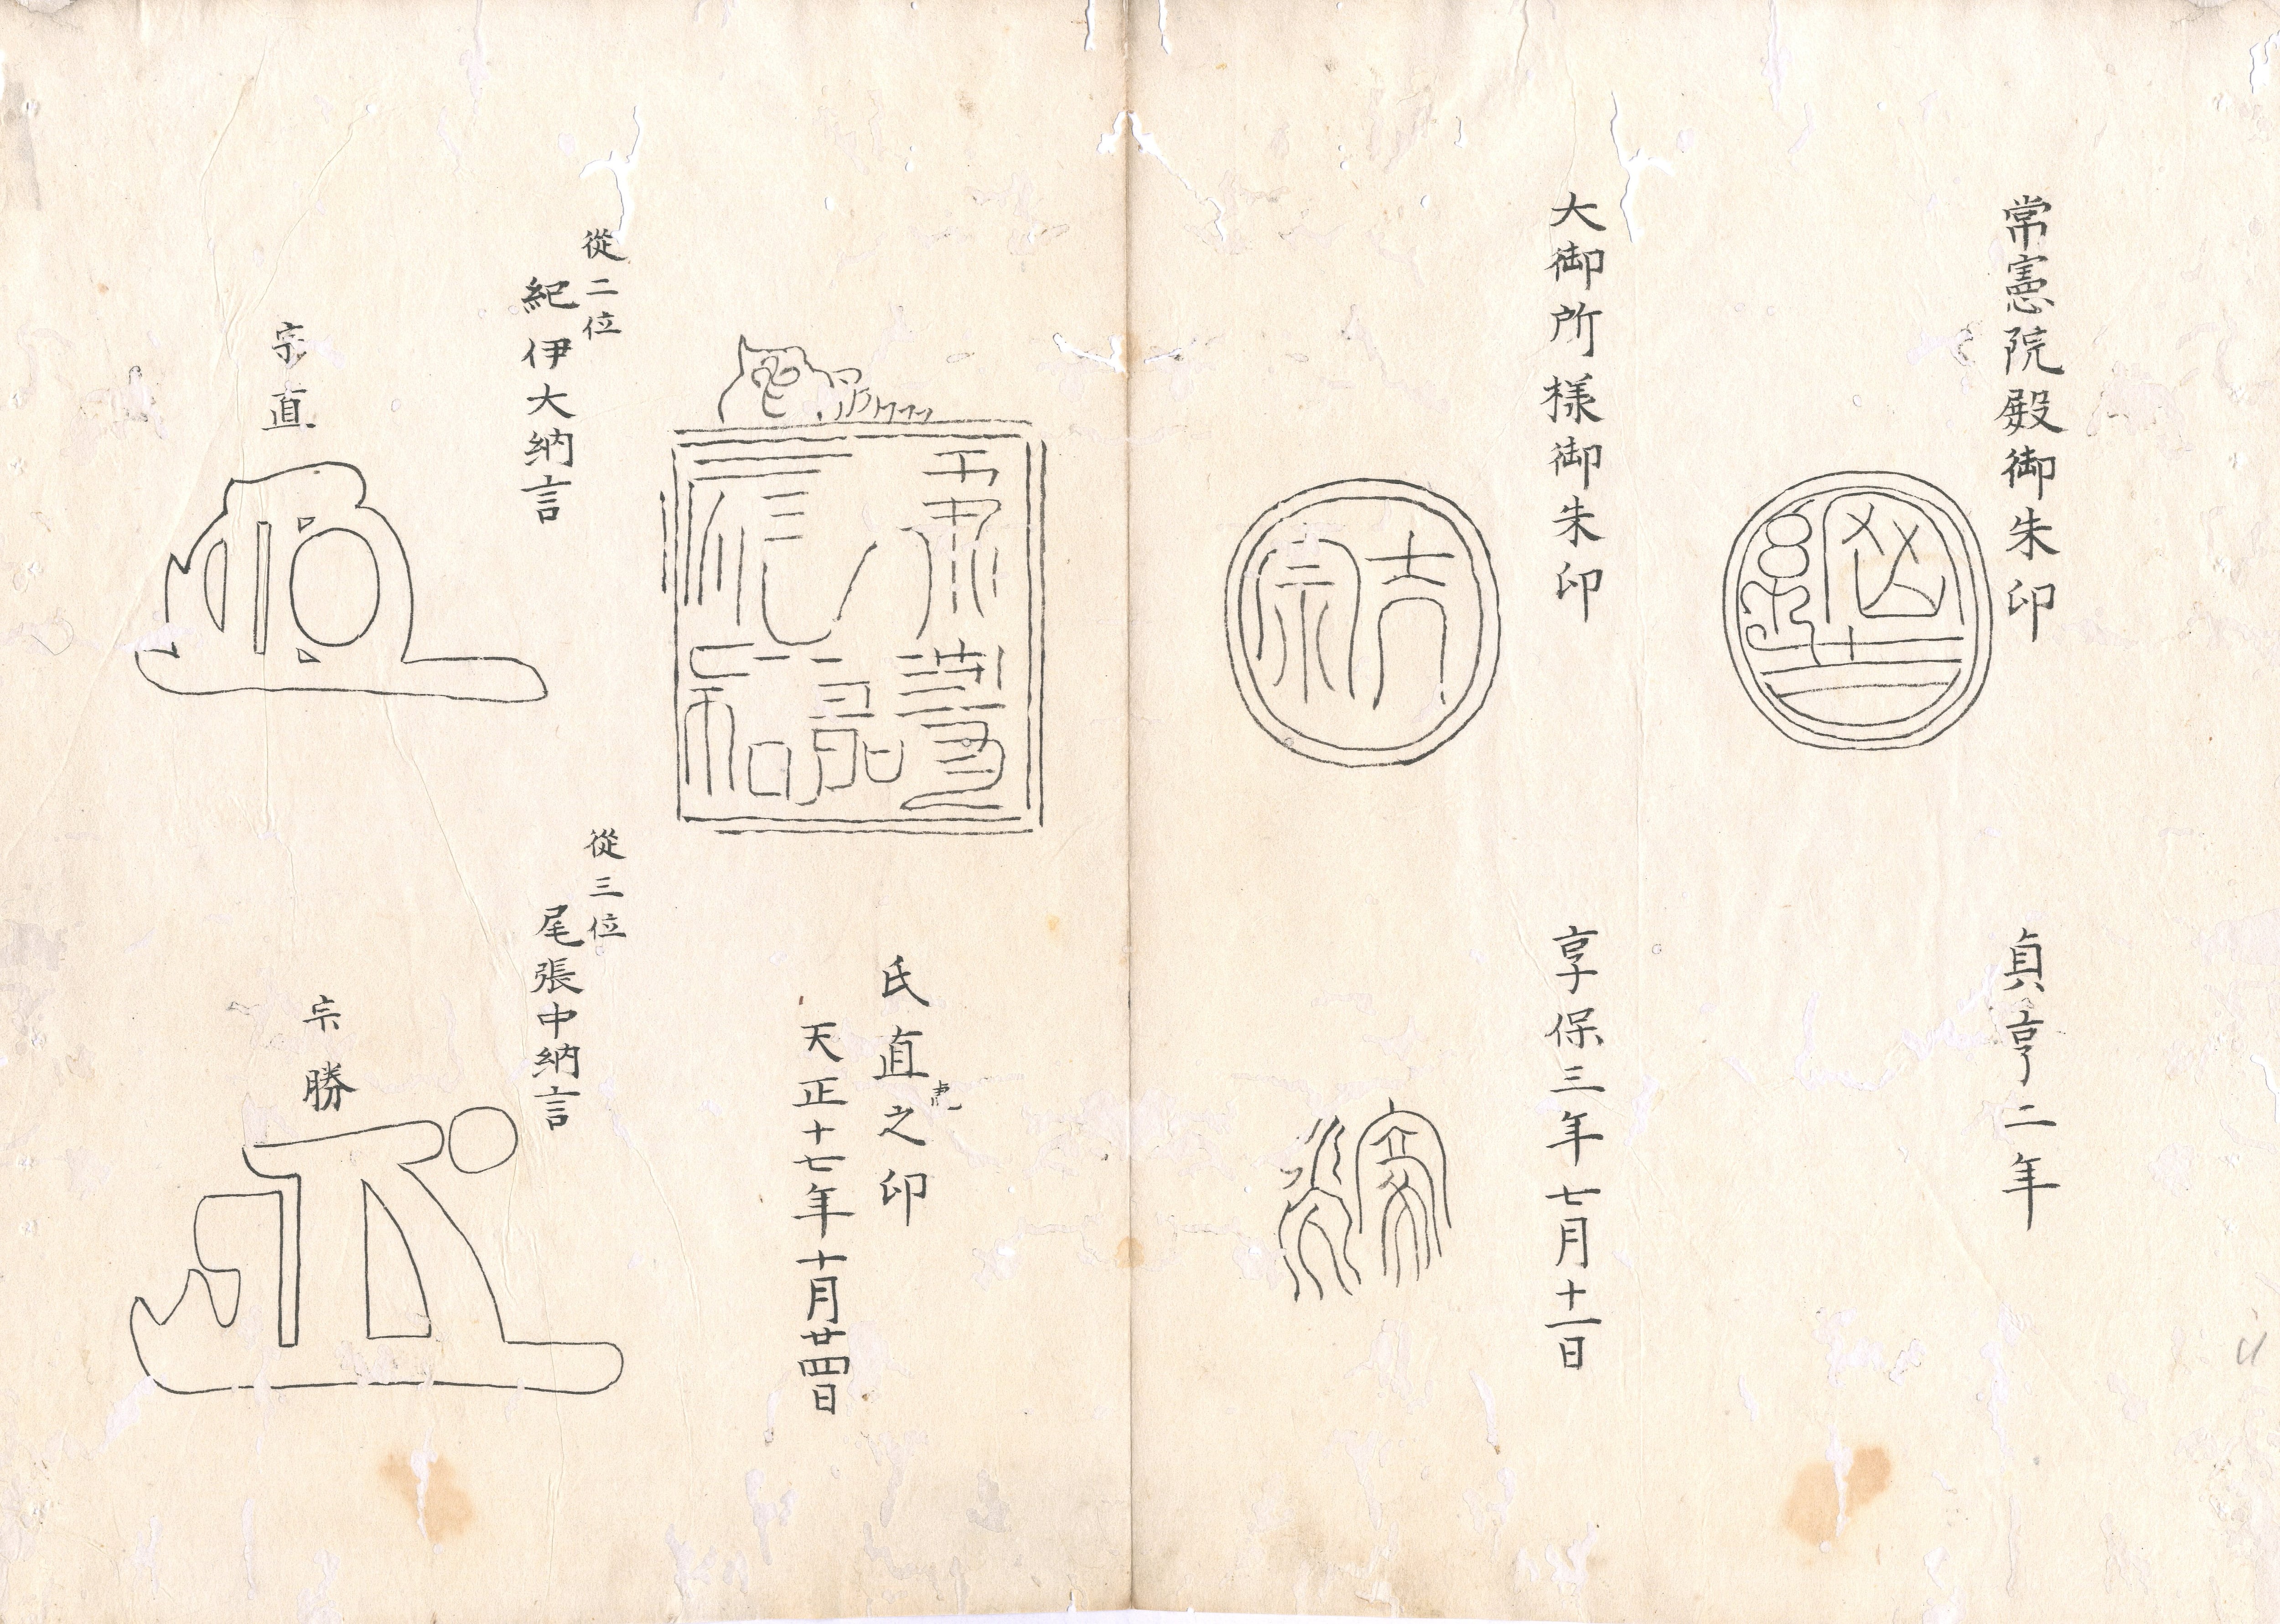 常憲院殿御朱印
貞享二年
綱吉
大御所様御朱印
享保三年七月十一日
吉宗
禄壽應穏
氏直之印
虎
天正十七年十月廿四日
従二位
紀伊大納言
宗直
従三位
尾張中納言
宗勝